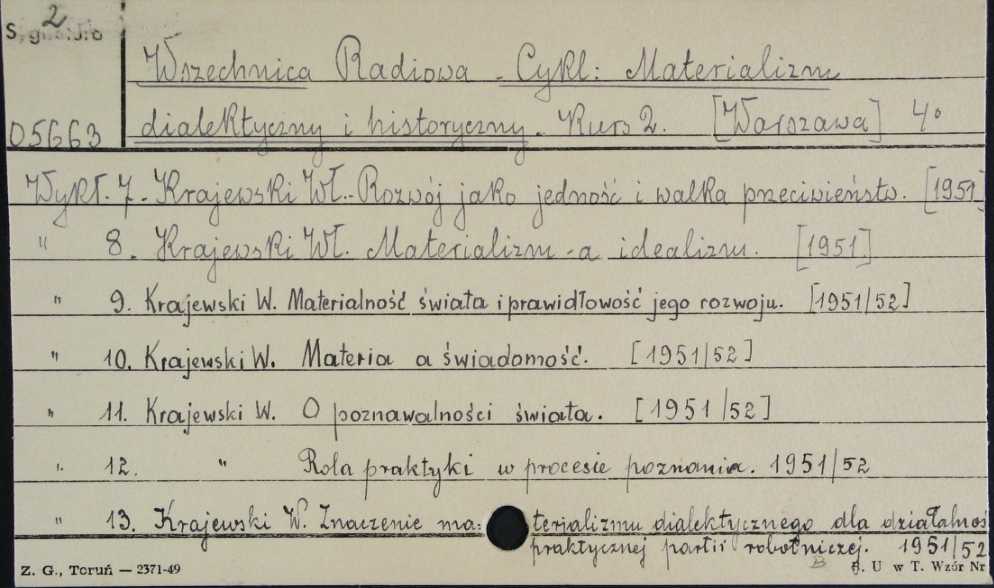 2
Wszechnica Radiowa - Cykl: Materializm
05663 dialektyczny i historyczny. Kurs 2. [Warszawa] 4°
Wykł. 7. Krajewski Wł. - Rozwój jako jedność i walka przeciwieństw. [1951]
" 8. Krajewski Wł. Materializm - a idealizm. [1951]
" 9. Krajewski W. Materialność świata i prawidłowość jego rozwoju. [1951/52]
" 10. Krajewski W. Materia a świadomość. [1951/52]
" 11. Krajewski W. O poznawalności świata. [1951/52]
" 12. " Rola praktyki w procesie poznania. 1951/52
" 13. Krajewski W. Znaczenie materializmu dialektycznego dla działalnoś
praktycznej partii robotniczej. 1951/52
Z. G., Toruń — 2371-49 B. U w T. Wzór Nr